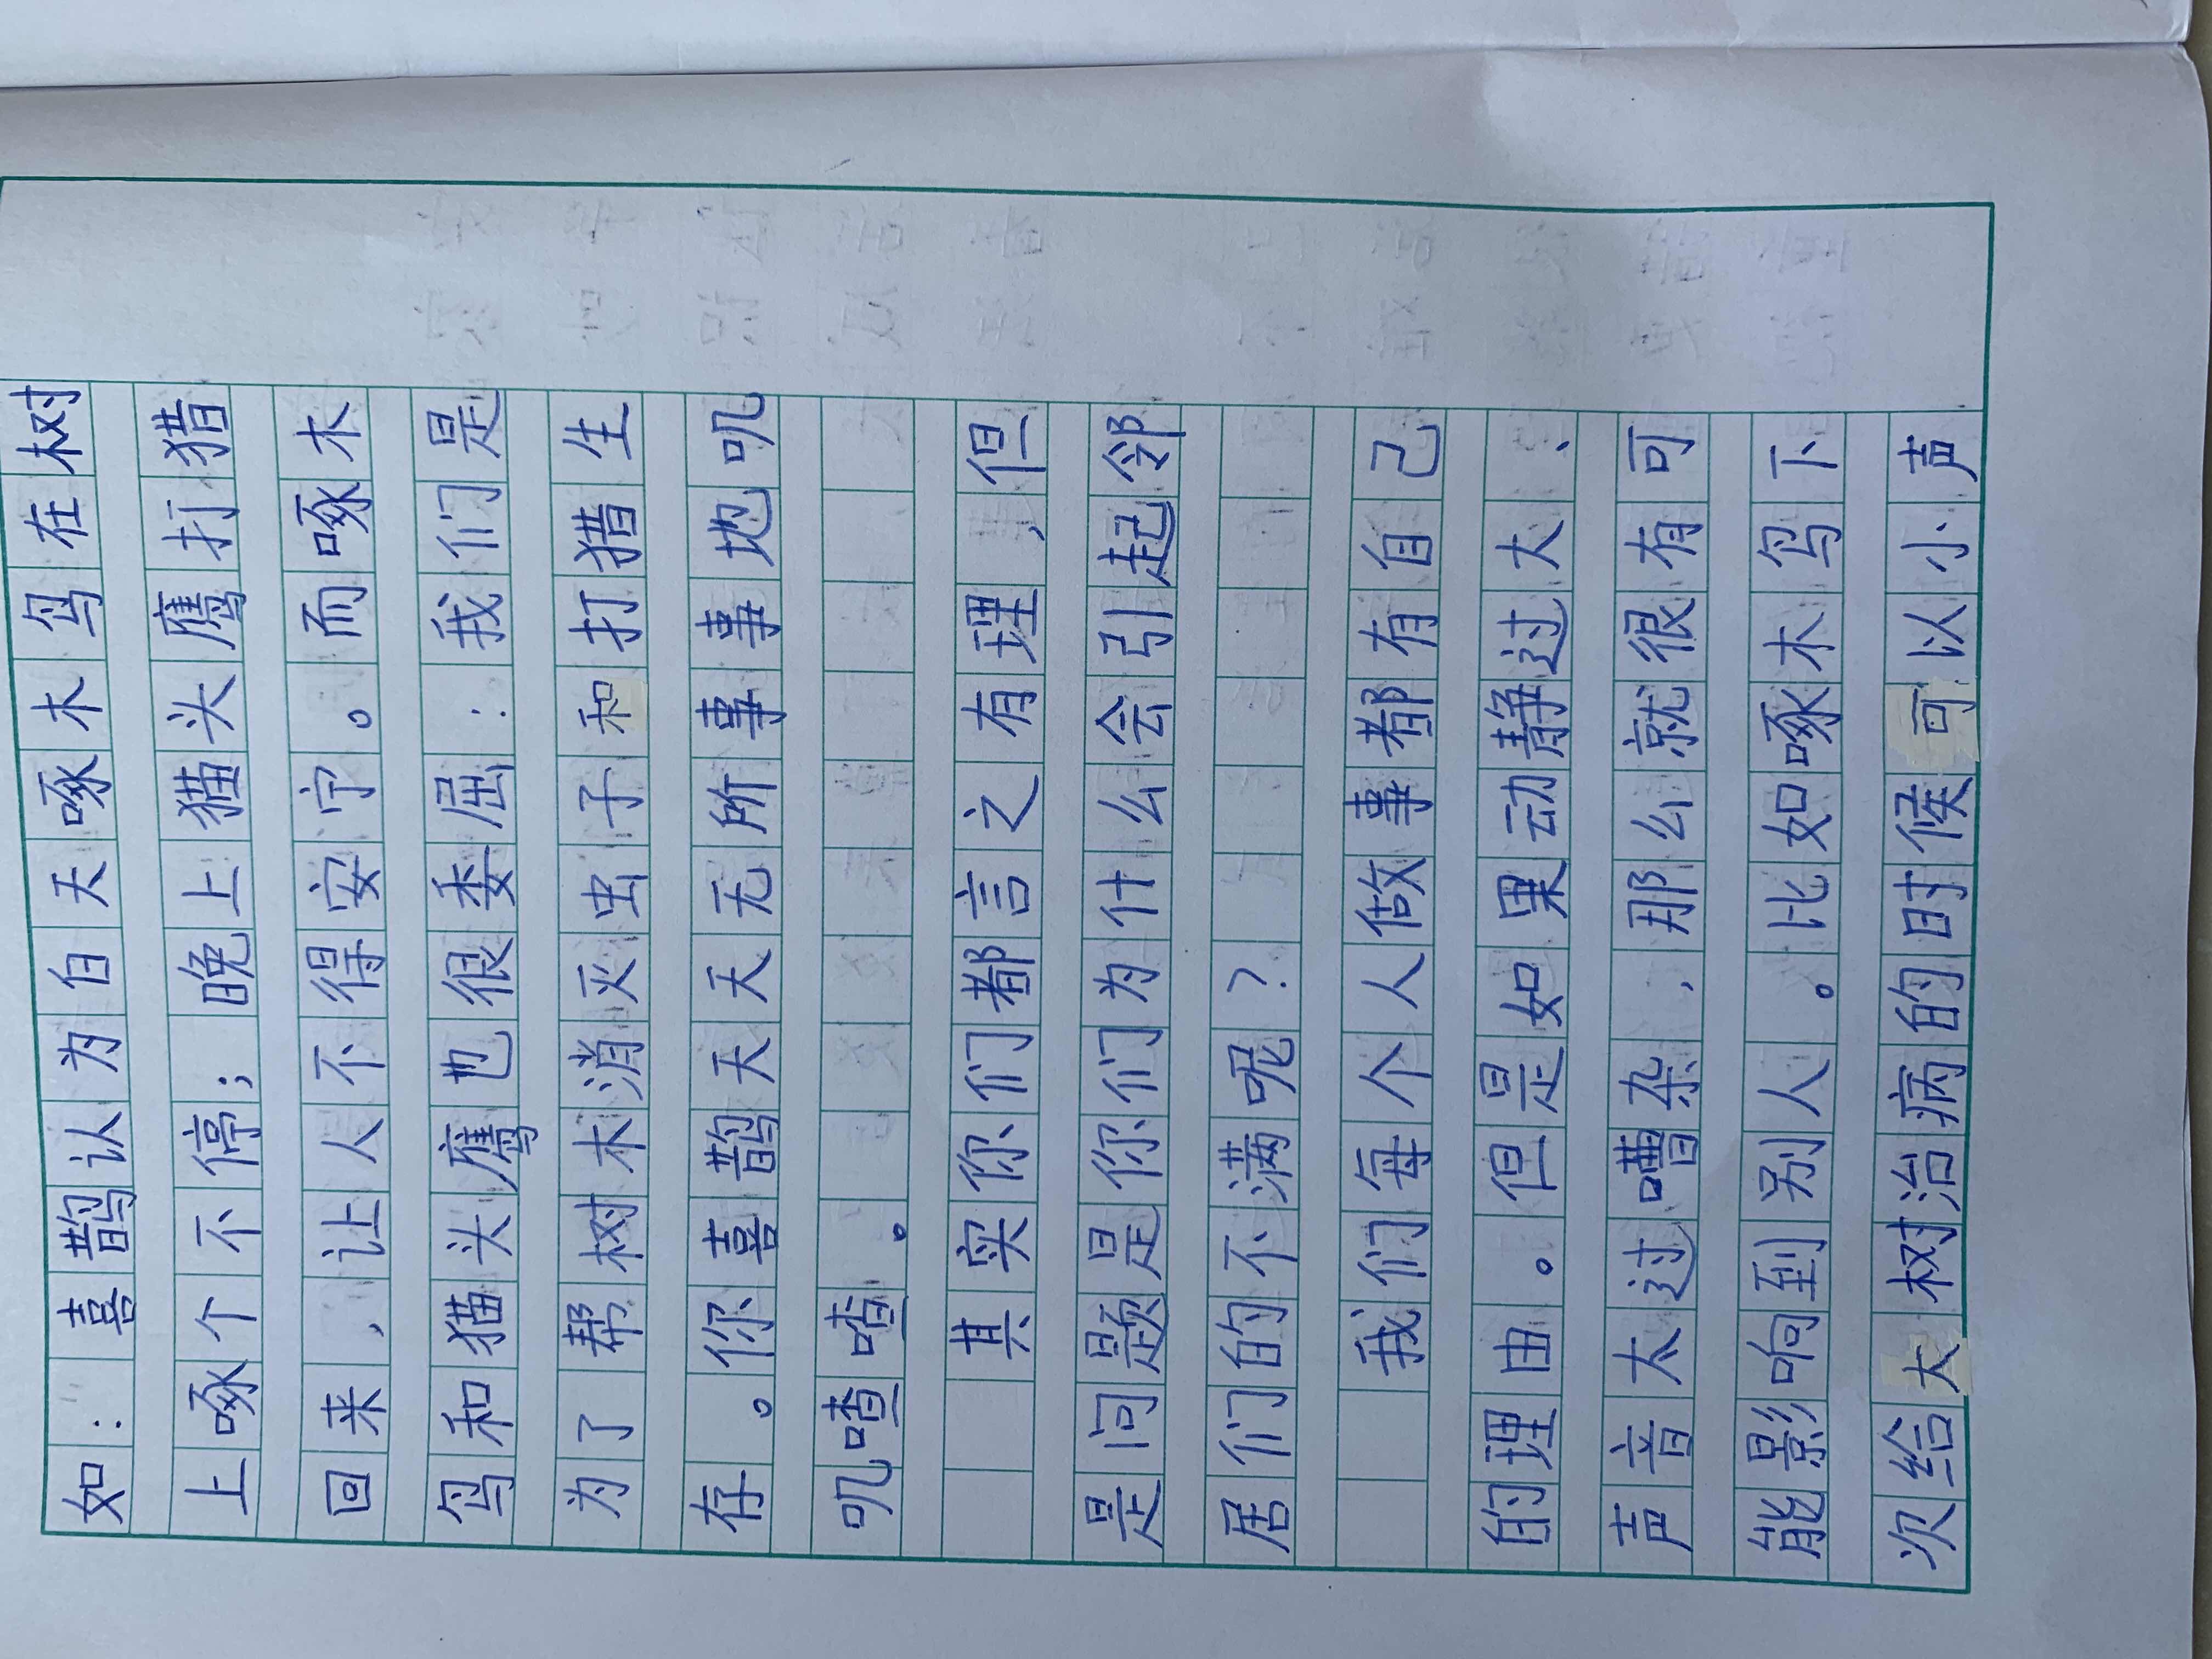 如：喜鹊认为白天啄木鸟在树
上啄个不停；晚上猫头鹰打猎
回来，让人不得安宁。而啄木
鸟和猫头鹰也很委屈：我们是
为了帮树木消灭虫子和打猎生
存。你喜鹊天天无所事事地叽
叽喳喳。
其实你们都言之有理，但
是问题是你们为什么会引起邻
居们的不满呢？
我们每个人做事都有自己
的理由。但是如果动静过大、
声音太过嘈杂，那么就很有可
能影响到别人。比如啄木鸟下
次给大树治病的时候可以小声